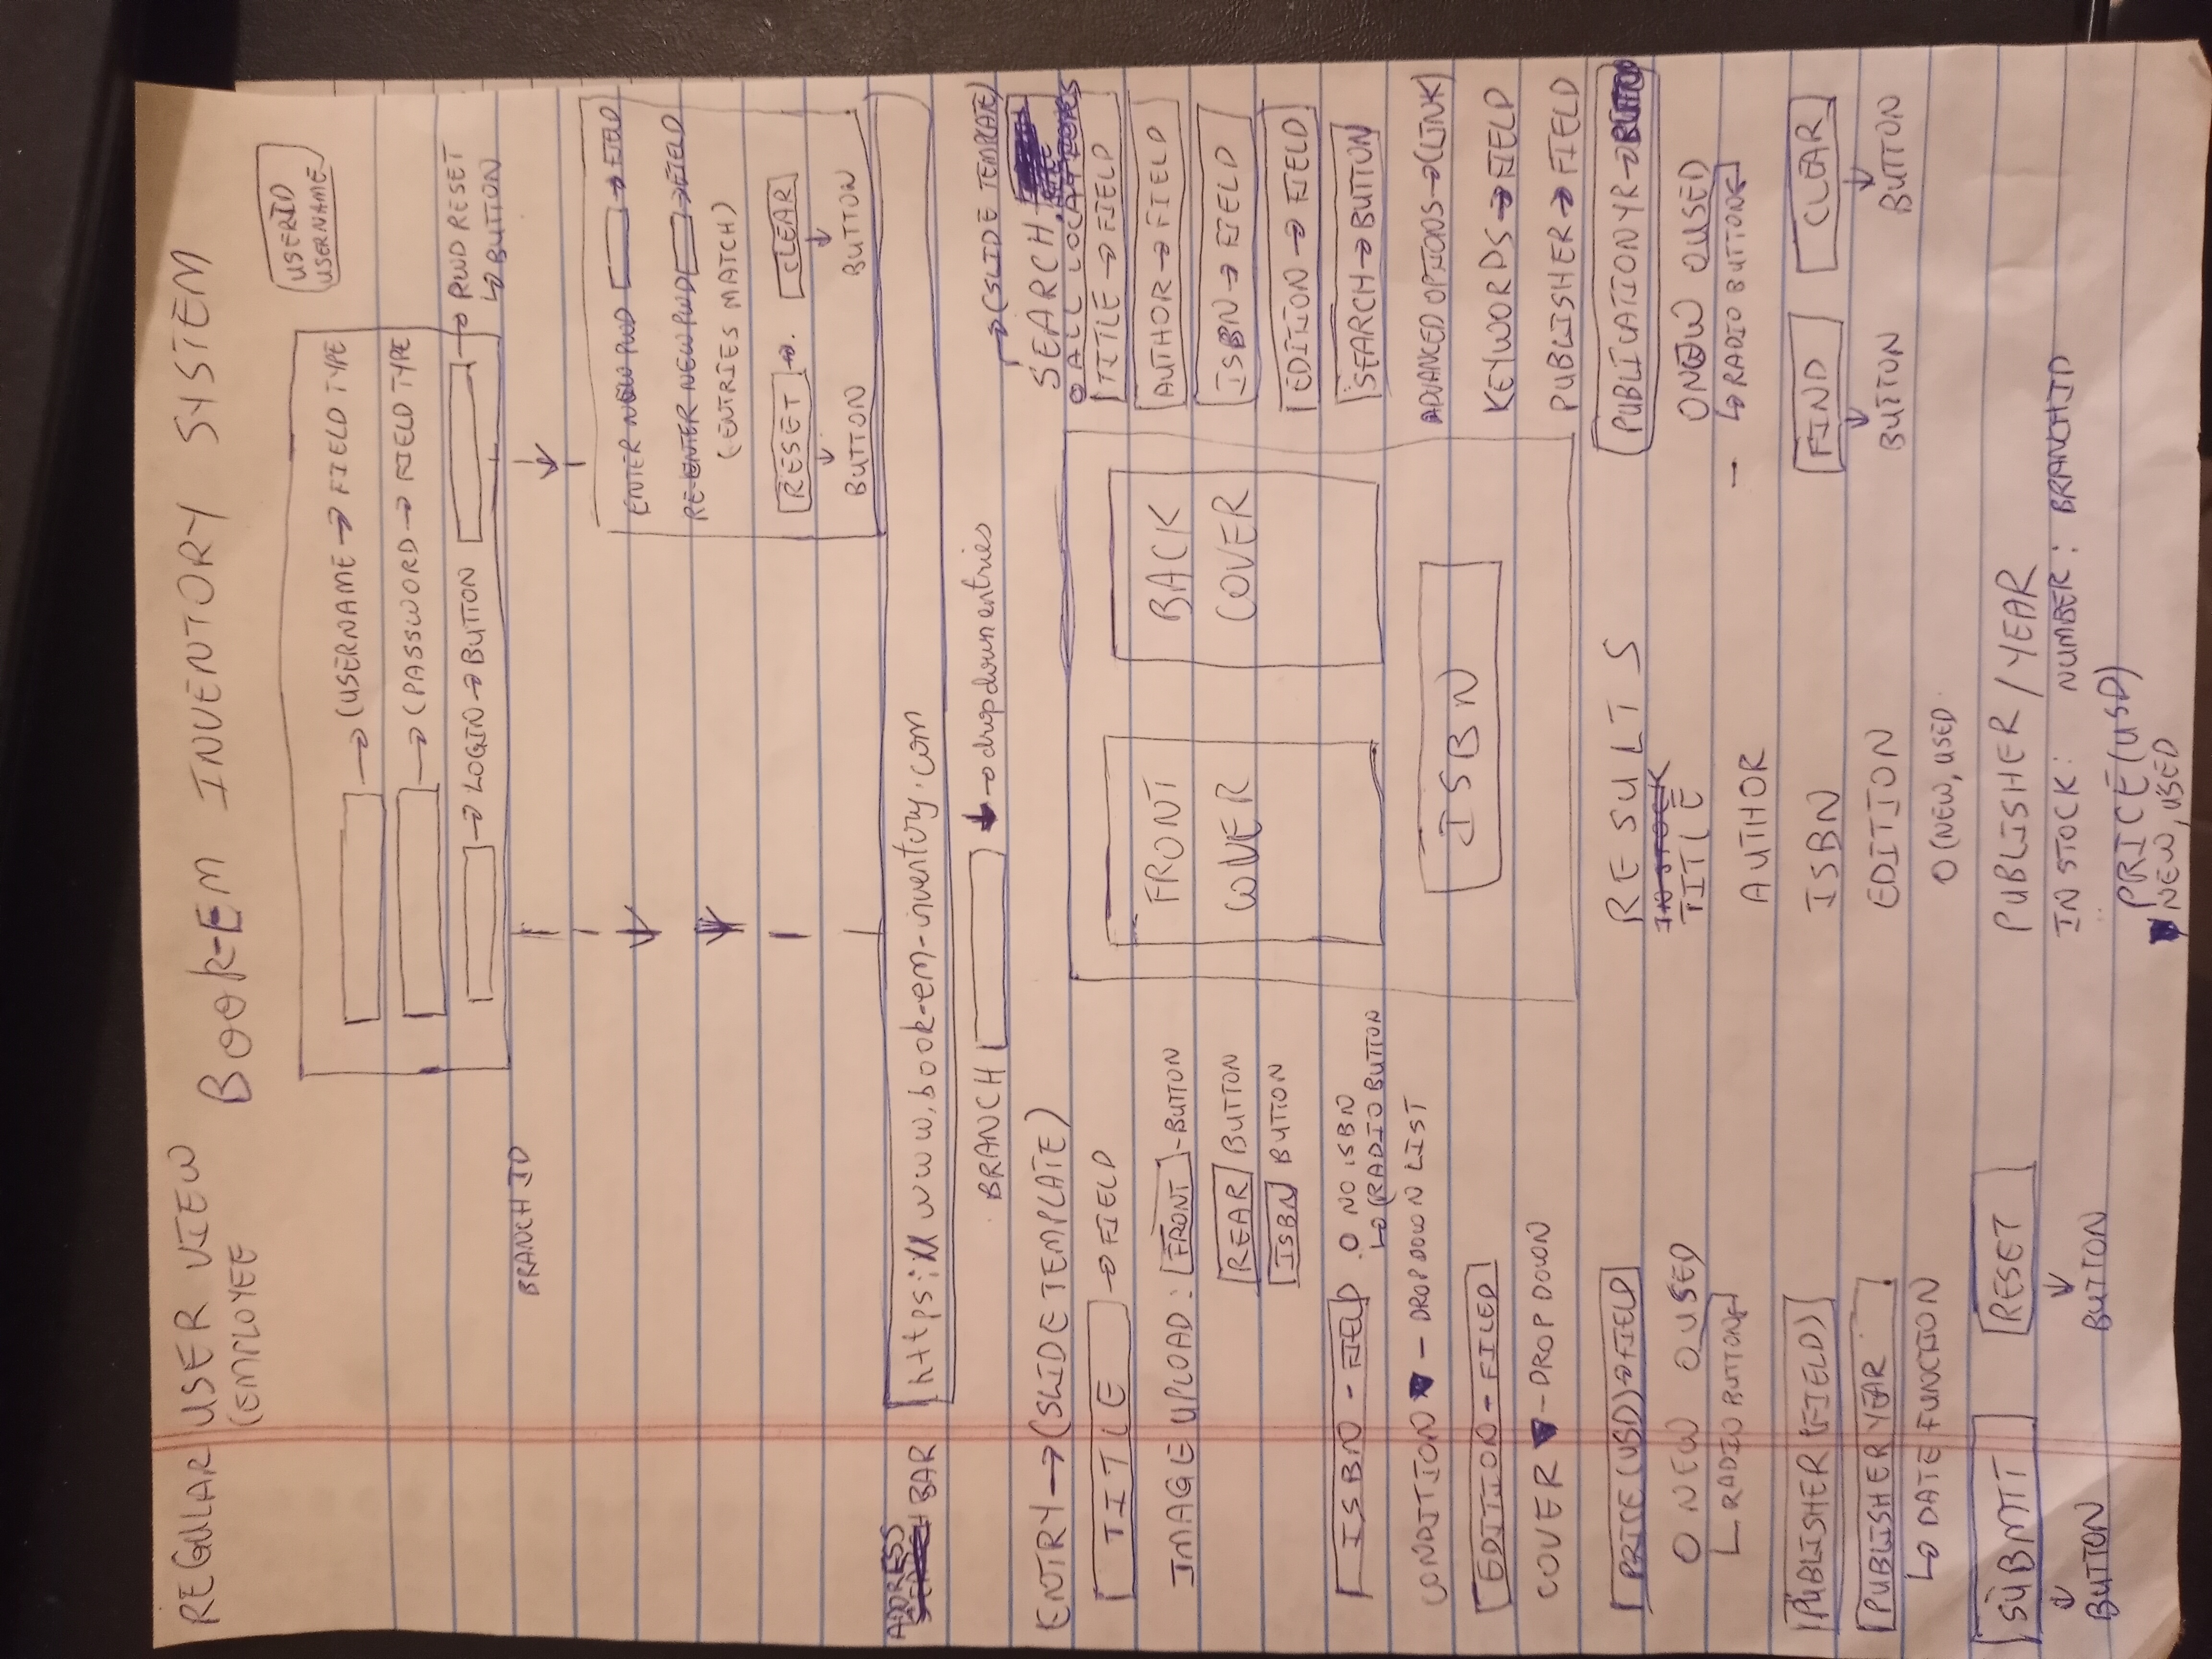 REGULAR USER VIEW
(EMPLOYEE
BOOK-EM INVENTORY SYSTEM
USERID
USERNAME
→ (USERNAME → FIELD TYPE
→ (PASSWORD → FIELD TYPE
→ LOGIN → BUTTON
→ PWD RESET
↳ BUTTON
BRANCH ID
ENTER NEW PWD → FIELD
RE-ENTER NEW PWD → FIELD
(ENTRIES MATCH)
RESET → CLEAR
BUTTON BUTTON
ADDRESS
SEARCH BAR
https://www.book-em-inventory.com
BRANCH ↓ → dropdown entries
ENTRY → (SLIDE TEMPLATE)
TITLE → FIELD
IMAGE UPLOAD: FRONT - BUTTON
REAR BUTTON
ISBN BUTTON
ISBN - FIELD O NO ISBN
↳ (RADIO BUTTON
CONDITION ▼ - DROPDOWN LIST
EDITION - FILED
COVER ▼ - DROP DOWN
PRICE (USD) → FIELD
O NEW O USED
RADIO BUTTONS
PUBLISHER (FIELD)
PUBLISHER YEAR
↳ DATE FUNCTION
SUBMIT RESET
BUTTON BUTTON
FRONT
COVER
BACK
COVER
ISBN
RESULTS
IN STOCK
TITLE
AUTHOR
ISBN
EDITION
O (NEW, USED
PUBLISHER / YEAR
IN STOCK: NUMBER: BRANCHID
PRICE (USD)
▼ NEW, USED
→ (SLIDE TEMPLATE)
SEARCH
O ALL LOCATIONS
TITLE → FIELD
AUTHOR → FIELD
ISBN → FIELD
EDITION → FIELD
SEARCH → BUTTON
ADVANCED OPTIONS → (LINK)
KEYWORDS → FIELD
PUBLISHER → FIELD
PUBLICATION YR →
O NEW O USED
- ↳ RADIO BUTTONS
FIND CLEAR
BUTTON BUTTON